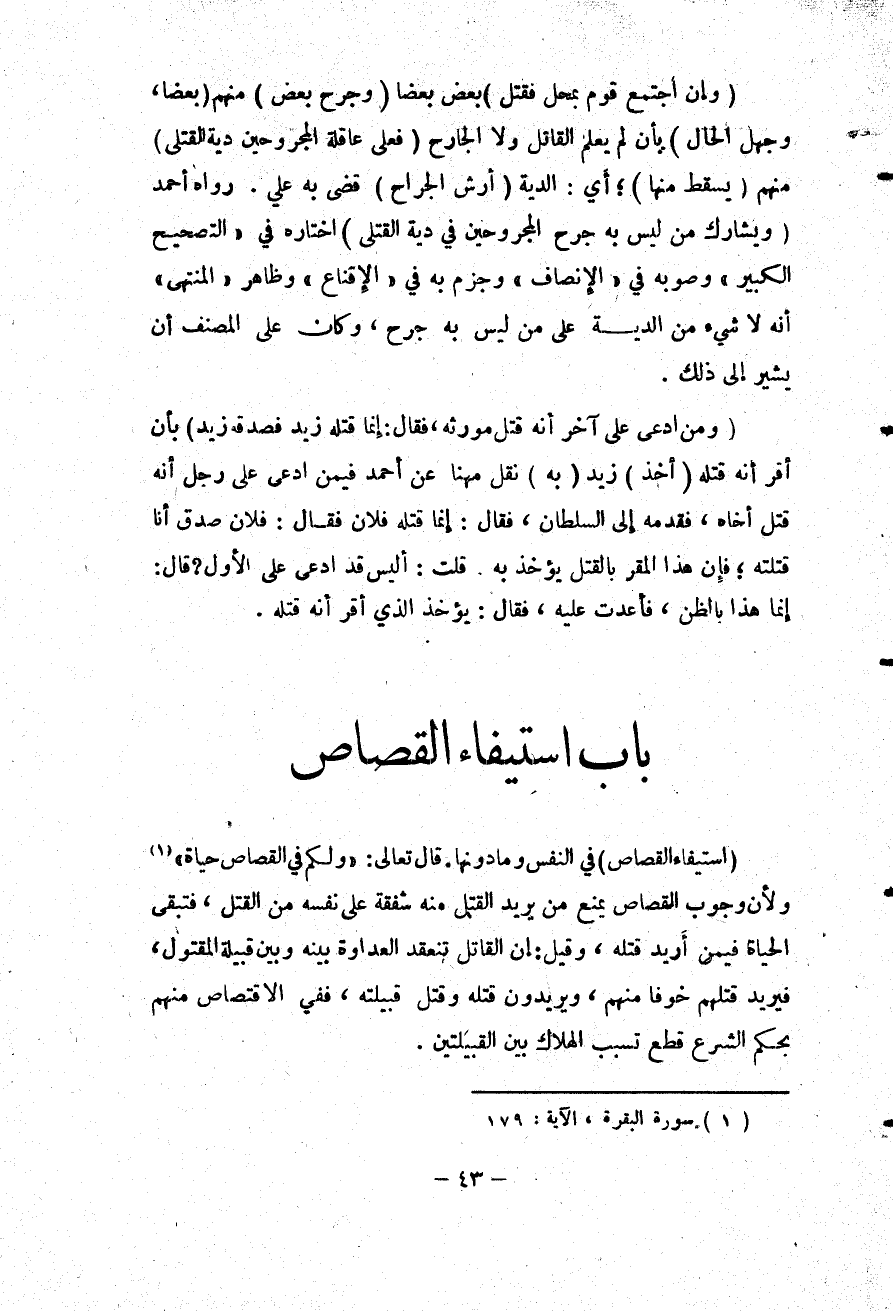 ( وإن أجتمع قوم بمحل فقتل ) بعض بعضا ( وجرح بعض ) منهم ( بعضا ،
وجهل الحال ) بأن لم يعلم القاتل ولا الجارح ( فعلى عاقلة المجروحين دية القتلى )
منهم ( يسقط منها ) ؛ أي : الدية ( أرش الجراح ) قضى به علي . رواه أحمد
( ويشارك من ليس به جرح المجروحين في دية القتلى ) اختاره في « التصحيح
الكبير » وصوبه في « الإنصاف » وجزم به في « الإقناع » وظاهر « المنتهى »
أنه لا شيء من الديـــة على من ليس به جرح ، وكان على المصنف أن
يشير إلى ذلك .
( ومن ادعى على آخر أنه قتل مورثه ، فقال : إنما قتله زيد فصدقه زيد ) بأن
أقر أنه قتله ( أخذ ) زيد ( به ) نقل مهنا عن أحمد فيمن ادعى على رجل أنه
قتل أخاه ، فقدمه إلى السلطان ، فقال : إنما قتله فلان فقـال : فلان صدق أنا
قتلته ؛ فإن هذا المقر بالقتل يؤخذ به . قلت : أليس قد ادعى على الأول ؟ قال :
إنما هذا بالظن ، فأعدت عليه ، فقال : يؤخذ الذي أقر أنه قتله .
باب استيفاء القصاص
( استيفاء القصاص ) في النفس وما دونها . قال تعالى : « ولكم في القصاص حياة » (١)
ولأن وجوب القصاص يمنع من يريد القتل منه شفقة على نفسه من القتل ، فتبقى
الحياة فيمن أريد قتله ، وقيل : إن القاتل تنعقد العداوة بينه وبين قبيلة المقتول ،
فيريد قتلهم خوفا منهم ، ويريدون قتله وقتل قبيلته ، ففي الاقتصاص منهم
بحكم الشرع قطع تسبب الهلاك بين القبيلتين .
( ١ ) سورة البقرة ، الآية : ١٧٩
– ٤٣ –